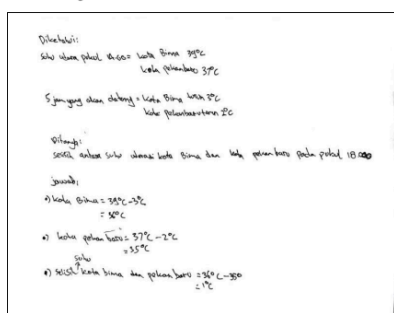 Diketahui:
Suhu udara pukul 14.00 = kota Bima 39°C
kota pekanbaru 37°C
5 jam yang akan datang = kota Bima turun 3°C
kota pekanbaru turun 2°C
Ditanya:
selisih antara suhu udara kota Bima dan kota pekanbaru pada pukul 18.00
jawab:
•) kota Bima = 39°C - 3°C
= 36°C
•) kota pekan baru = 37°C - 2°C
= 35°C
suhu
•) selisih kota bima dan pekan baru = 36°C - 35
= 1°C